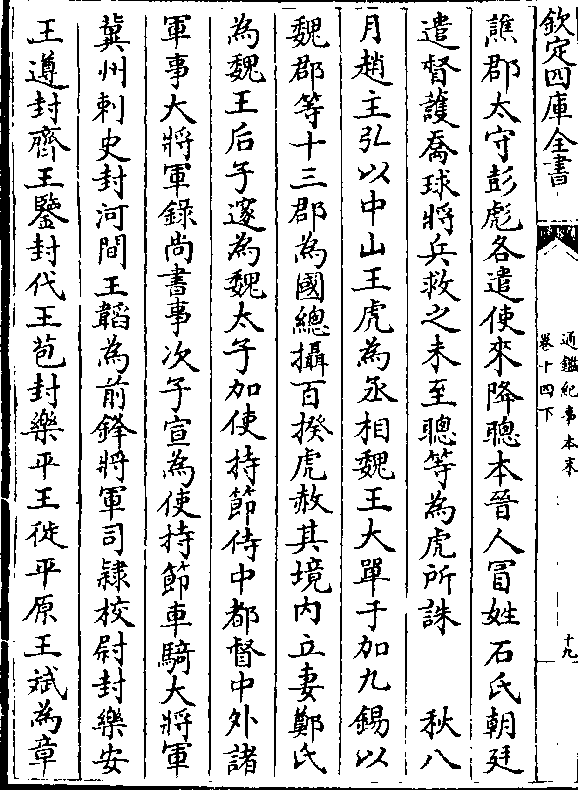 欽定四庫全書
通鑑紀事本末
卷十四下
十九
譙郡太守彭彪各遣使來降聰本晉人冒姓石氏朝廷
遣督護喬球將兵救之未至聰等為虎所誅　秋八
月趙主弘以中山王虎為丞相魏王大單于加九錫以
魏郡等十三郡為國總攝百揆虎赦其境内立妻鄭氏
為魏王后子邃為魏太子加使持節侍中都督中外諸
軍事大將軍錄尚書事次子宣為使持節車騎大將軍
冀州刺史封河間王韜為前鋒將軍司隸校尉封樂安
王遵封齊王鑒封代王苞封樂平王徙平原王斌為章